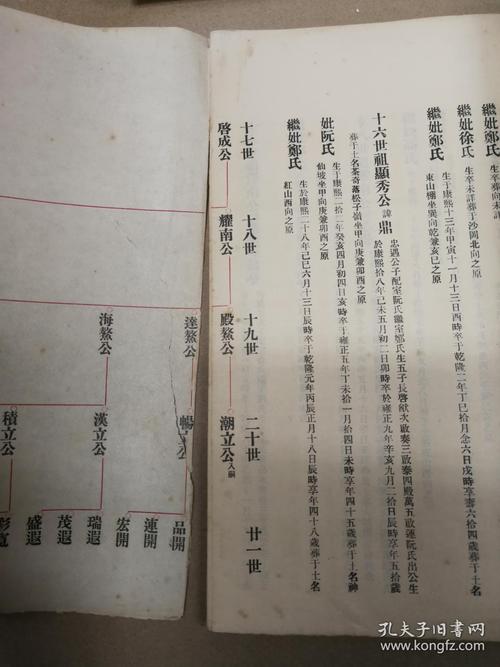 生卒葬向未詳
繼妣徐氏
生卒未詳葬于沙岡北向之原
繼妣鄭氏
生于康熙十三年甲寅十一月十三日酉時卒于乾隆二年丁巳拾月念六日戌時享壽六拾四歲葬于土名
東山棚坐巽向乾兼亥巳之原
十六世祖顯秀公諱鼎
忠遇公子配室阮氏繼室鄭氏生五子長啓猷次啟奏三啟泰四殿萬五啟運阮氏出公生
於康熙拾八年己未五月初二日卯時卒於雍正九年辛亥九月二拾日辰時享年五拾歲
葬于土名荃奇落松子嶺坐甲向庚兼卯酉之原
妣阮氏
生于康熙二拾二年癸亥四月初四日亥時卒于雍正五年丁未拾一月拾四日未時享年四十五歲葬于土名神
仙坡坐甲向庚兼卯酉之原
繼妣鄭氏
生於康熙二十八年己巳六月十三日辰時卒于乾隆元年丙辰正月十八日辰時享年四十八歲葬于土名
紅山西向之原
十七世
十八世
十九世
二十世
廿一世
啓成公
耀南公
殿鰲公
潮立公入嗣
達鰲公
暢立公
品開
連開
宏開
海鰲公
漢立公
瑞遐
茂遐
盛遐
積立公
彭寬
孔夫子旧书网
kongfz.com